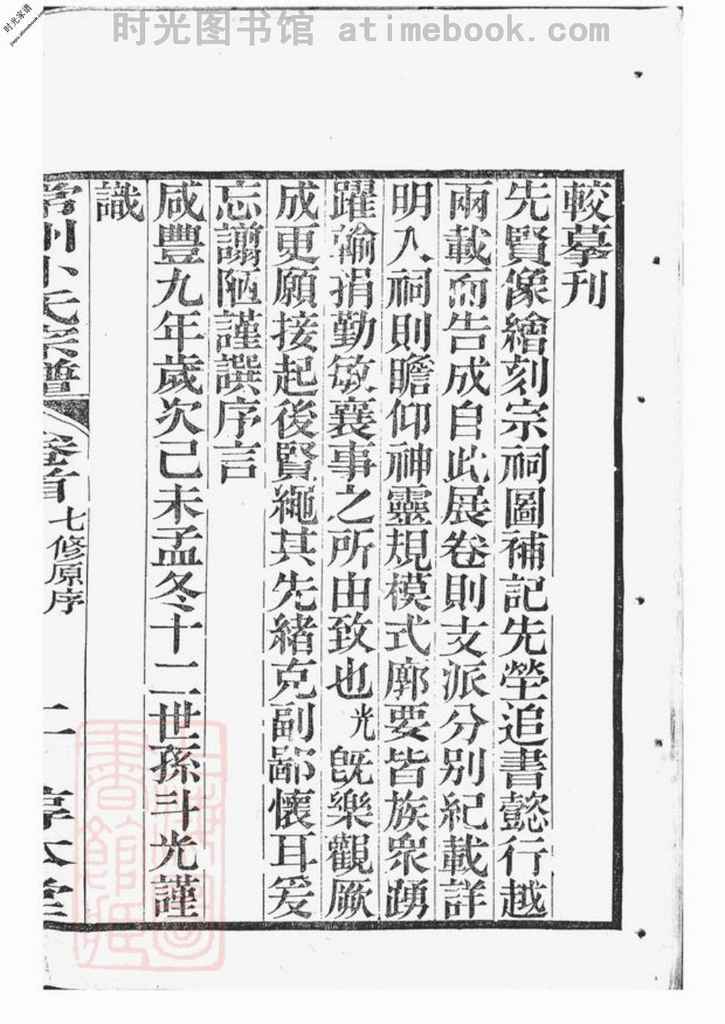 时光图书馆 atimebook.com
时光家谱
較摹刊
先賢像繪刻宗祠圖補記先塋追書懿行越
兩載而告成自此展卷則支派分別紀載詳
明入祠則瞻仰神靈規模式廓要皆族衆踴
躍輸捐勤敏襄事之所由致也光既樂觀厥
成更願接起後賢繩其先緒克副鄙懷耳爰
忘譾陋謹譔序言
咸豐九年歲次己未孟冬十二世孫斗光謹
識
氏宗譜 卷首 七修原序 二 惇本堂